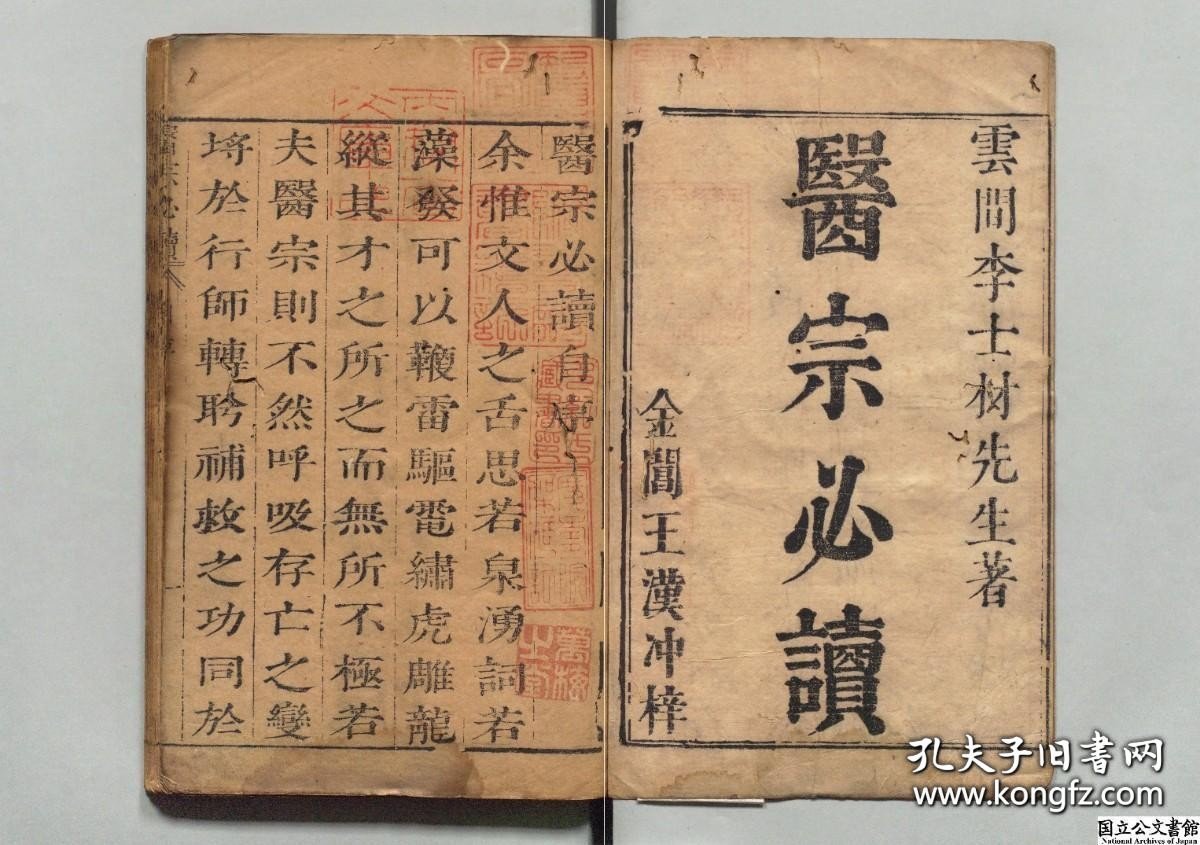 雲間李士材先生著
醫宗必讀
金閶王漢冲梓
醫宗必讀自序
余惟文人之舌思若泉湧詞若
藻發可以鞭雷驅電繡虎雕龍
縱其才之所之而無所不極若
夫醫宗則不然呼吸存亡之變
埒於行師轉盻補救之功同於
萬梅之堂
孔夫子旧书网
www.kongfz.com
国立公文書館
National Archives of Japan